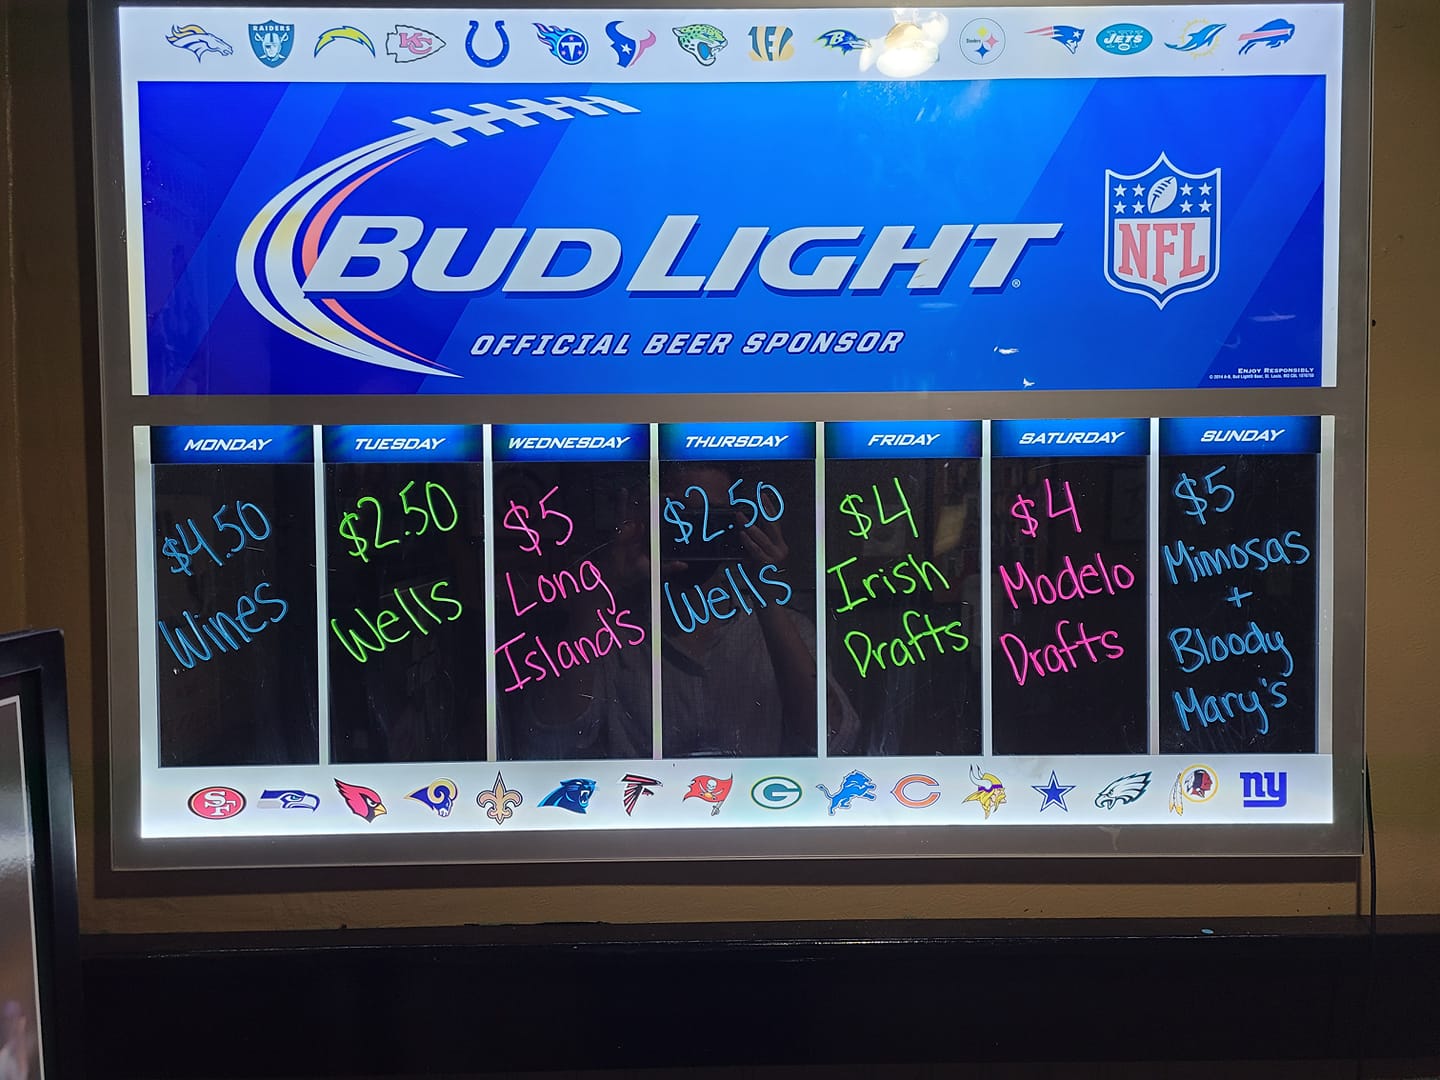 RAIDERS
KC
Steelers
JETS
BUD LIGHT®
NFL
OFFICIAL BEER SPONSOR
ENJOY RESPONSIBLY
MONDAY
$4.50
Wines
TUESDAY
$2.50
Wells
WEDNESDAY
$5
Long
Island's
THURSDAY
$2.50
Wells
FRIDAY
$4
Irish
Drafts
SATURDAY
$4
Modelo
Drafts
SUNDAY
$5
Mimosas
+
Bloody
Mary's
SF
G
C
ny